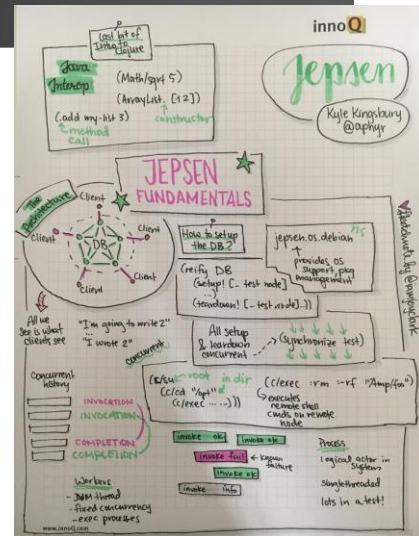 innoQ
Last bit of
Intro to
Clojure
Java
Interop
(Math/sqrt 5)
(ArrayList. [1 2])
(.add my-list 3)
constructor
method
call
Jepsen
Kyle Kingsbury
@aphyr
JEPSEN
FUNDAMENTALS
The Architecture
Client
Client
Client
Client
Client
DB
How to setup
the DB?
jepsen.os.debian
provides OS
support, pkg
management
(reify DB
(setup! [_ test node]
...)
(teardown! [_ test node]..))
All we
see is what
clients see
"I'm going to write 2"
"I wrote 2"
concurrent
All setup
& teardown
concurrent
(synchronize test)
Concurrent
history
INVOCATION
INVOCATION
COMPLETION
COMPLETION
(c/su
root
in dir
(c/cd "/opt"
(c/exec ... ...)))
(c/exec :rm :-rf "/tmp/foo")
executes
remote shell
cmds on remote
node
invoke ok
invoke ok
invoke fail
known
failure
invoke ok
invoke info
Process
Logical actor in
system
Singlethreaded
lots in a test!
Workers
- JVM thread
- fixed concurrency
- exec processes
www.innoQ.com